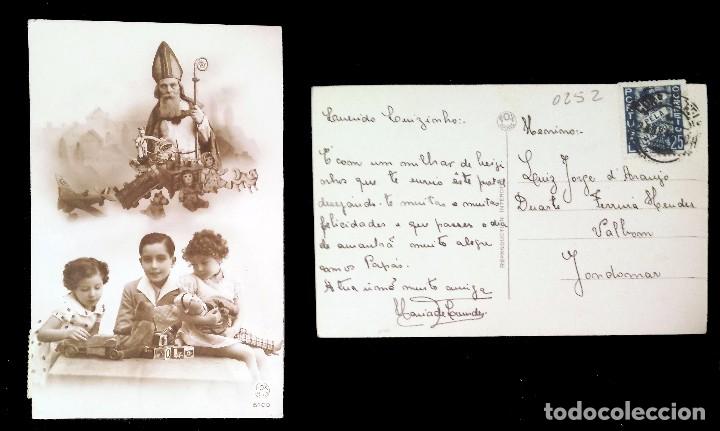 FOX
5100
0252
Querido Luizinho:.
É com um milhar de beiji
nhos que te envio êste postal
desejando-te muitas e muitas
felicidades e que passes o dia
de amanhã muito alegre
Papás.
A tua muito amiga
Maria de Lourdes
REPRODUCTION INTERDITE
Menino:
Luiz Jorge d'Araujo
Duarte Ferreira Mendes
Valbom
Gondomar
TUDO PELA
25
todocoleccion.net